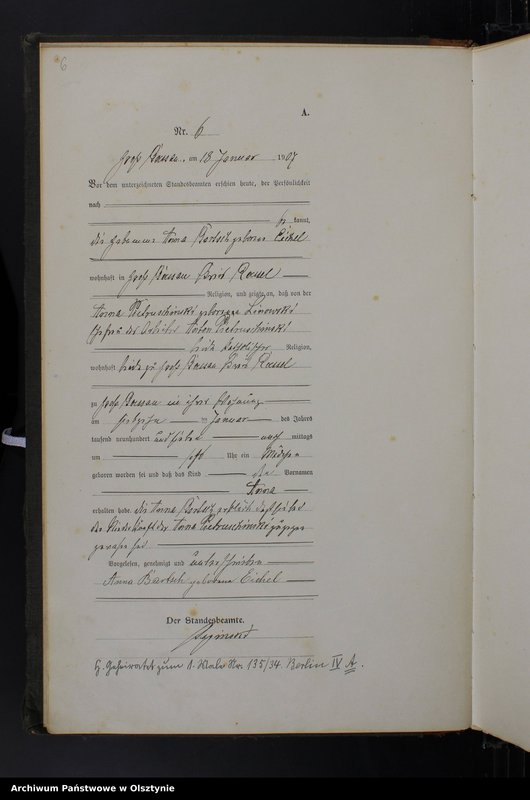 6
A.
Nr. 6
Groß Bössau, am 18 Januar 1907
Vor dem unterzeichneten Standesbeamten erschien heute, der Persönlichkeit
nach
be kannt,
die Hebamme Anna Bartsch geborene Eichel
wohnhaft in Groß Bössau
Religion, und zeigte an, daß von der
Anna Pietruschinski geborene
Ehefrau des Arbeiter Anton Pietruschinski
beide katholischer Religion,
wohnhaft
zu Groß Bössau in ihrer Wohnung
am ten Januar des Jahres
tausend neunhundert und sieben nach mittags
um Uhr ein Mädchen
geboren worden sei und daß das Kind Vornamen
Anna
erhalten habe. die Anna Bartsch erklärt daß sie bei
der Niederkunft der Anna Pietruschinski zugegen
gewesen sei
Vorgelesen, genehmigt und unterschrieben
Anna Bartsch geborene Eichel
Der Standesbeamte.
H. Geheiratet zum 1. Male Nr. 135/34. Berlin IV A.
Archiwum Państwowe w Olsztynie